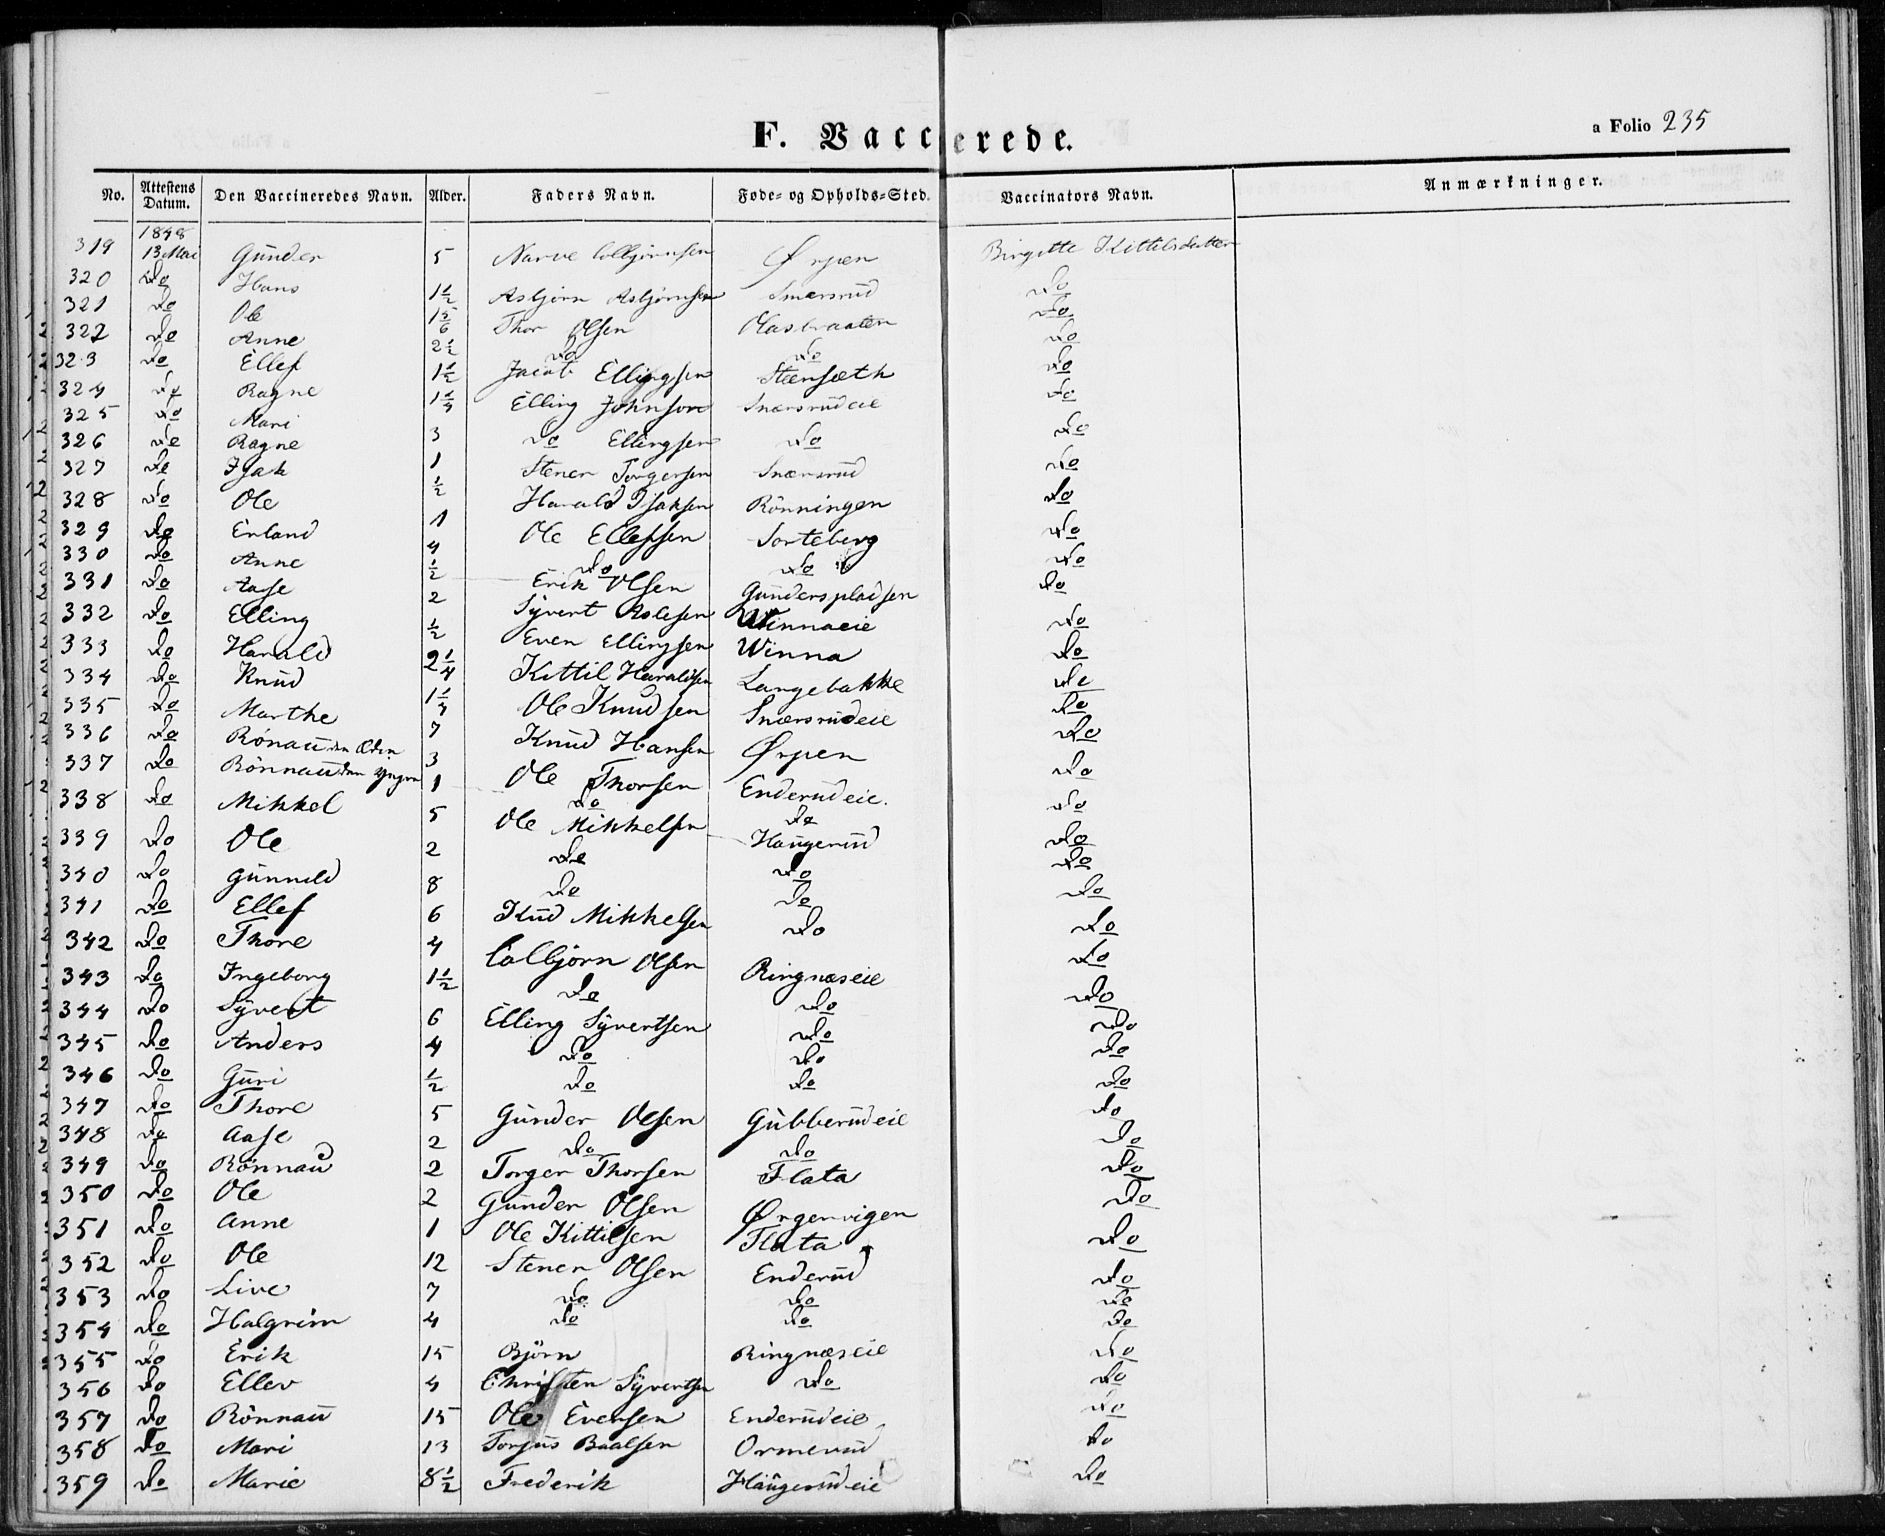 F. Vaccinerede.
a Folio 235
No. Attestens Datum. Den Vaccineredes Navn. Alder. Faders Navn. Føde- og Opholds-Sted. Vaccinators Navn. Anmærkninger.
1848
319 13 Mai Gunder 5 Narve Colbjørnsen Ørpen Birgitte Kittelsdatter
320 Do Hans 1½ Asbjørn Asbjørnsen Snærsrud Do
321 Do Ole 1 5/6 Thor Olsen Olasbraaten Do
322 Do Anne 2½ Do Do Do
323 Do Ellef 1½ Jacob Ellingsen Stensæth Do
324 Do Ragne Elling Johnson Snærsrudeie Do
325 Do Mari 3 Do Ellingsen Do Do
326 Do Ragne 1 Stener Torgersen Snærsrud Do
327 Do Isak ½ Harald Isaksen Rönningen Do
328 Do Ole 1 Ole Ellefsen Sorteberg Do
329 Do Erland 4 Do Do Do
330 Do Anne ½ Erik Olsen Gunderspladsen Do
331 Do Aase 2 Syvert Aslesen Winnaeie Do
332 Do Elling ½ Even Ellingsen Winna Do
333 Do Harald 2¼ Kittil Haraldsen Langebakke Do
334 Do Knud Ole Knudsen Snærsrudeie Do
335 Do Marthe 7 Knud Hansen Ørpen Do
336 Do Rönau den Ældre 3 Ole Thorsen Enderudeie. Do
337 Do Rönnau den yngre 1 Do Do Do
338 Do Mikkel 5 Ole Mikkelsen Haugerud Do
339 Do Ole 2 Do Do Do
340 Do Gunnild 8 Do Do Do
341 Do Ellef 6 Knud Mikkelsen Do Do
342 Do Thore 4 Colbjørn Olsen Ringnæseie Do
343 Do Ingeborg 1½ Do Do Do
344 Do Syvert 6 Elling Syvertsen Do Do
345 Do Anders 4 Do Do Do
346 Do Guri ½ Do Do Do
347 Do Thore 5 Gunder Olsen Gubberudeie Do
348 Do Aase 2 Do Do Do
349 Do Rönnau 2 Torger Thorsen Flata Do
350 Do Ole 2 Gunder Olsen Ørgenvigen Do
351 Do Anne 1 Ole Kittilsen Flata Do
352 Do Ole 12 Stener Olsen Enderud Do
353 Do Live 7 Do Do Do
354 Do Halgrim 4 Do Do Do
355 Do Erik 15 Björn Ringnæseie Do
356 Do Ellev 4 Christen Syvertsen Do Do
357 Do Rönnau 15 Ole Evensen Enderudeie Do
358 Do Mari 13 Torjus Baalsen Ormerud Do
359 Do Marie 8½ Frederik Haugerudeie Do